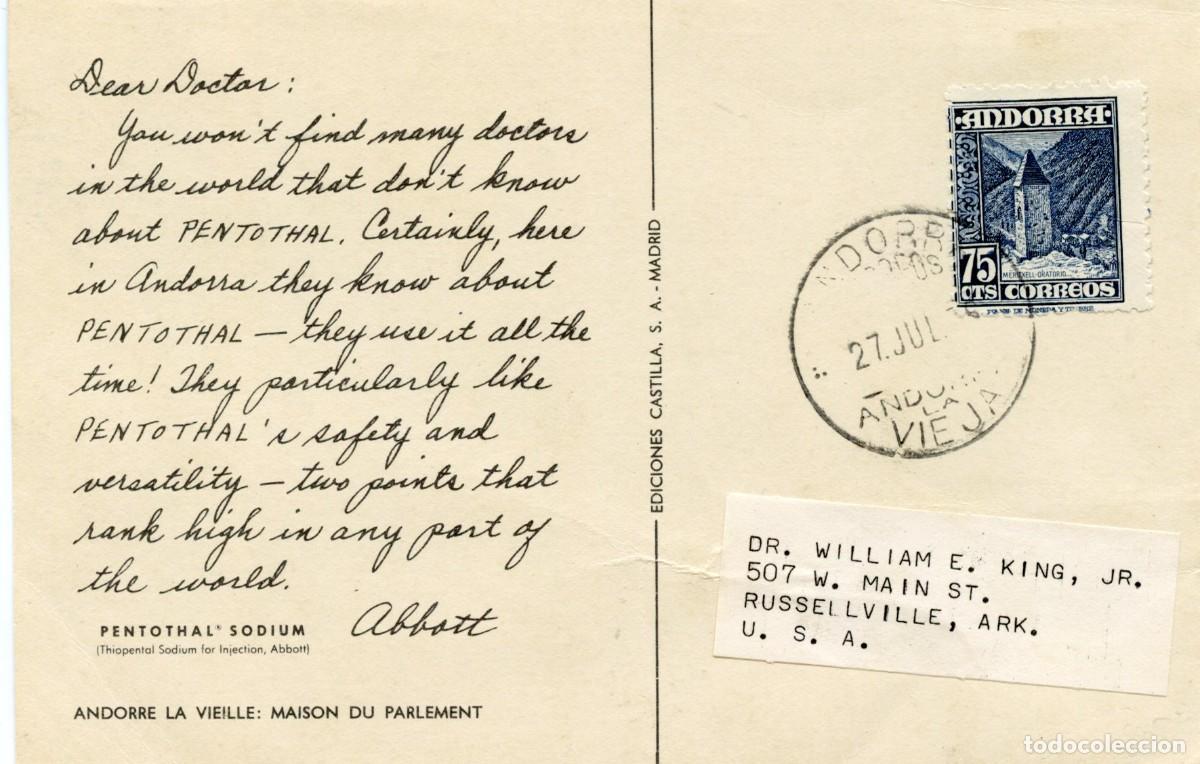 Dear Doctor:
You won't find many doctors
in the world that don't know
about PENTOTHAL. Certainly, here
in Andorra they know about
PENTOTHAL — they use it all the
time! They particularly like
PENTOTHAL's safety and
versatility — two points that
rank high in any part of
the world.
Abbott
PENTOTHAL® SODIUM
(Thiopental Sodium for Injection, Abbott)
ANDORRE LA VIEILLE: MAISON DU PARLEMENT
EDICIONES CASTILLA, S. A. - MADRID
ANDORRA
MERITXELL-ORATORIO
75
CTS CORREOS
27.JUL.
LA
VIEJA
DR. WILLIAM E. KING, JR.
507 W. MAIN ST.
RUSSELLVILLE, ARK.
U. S. A.
todocoleccion